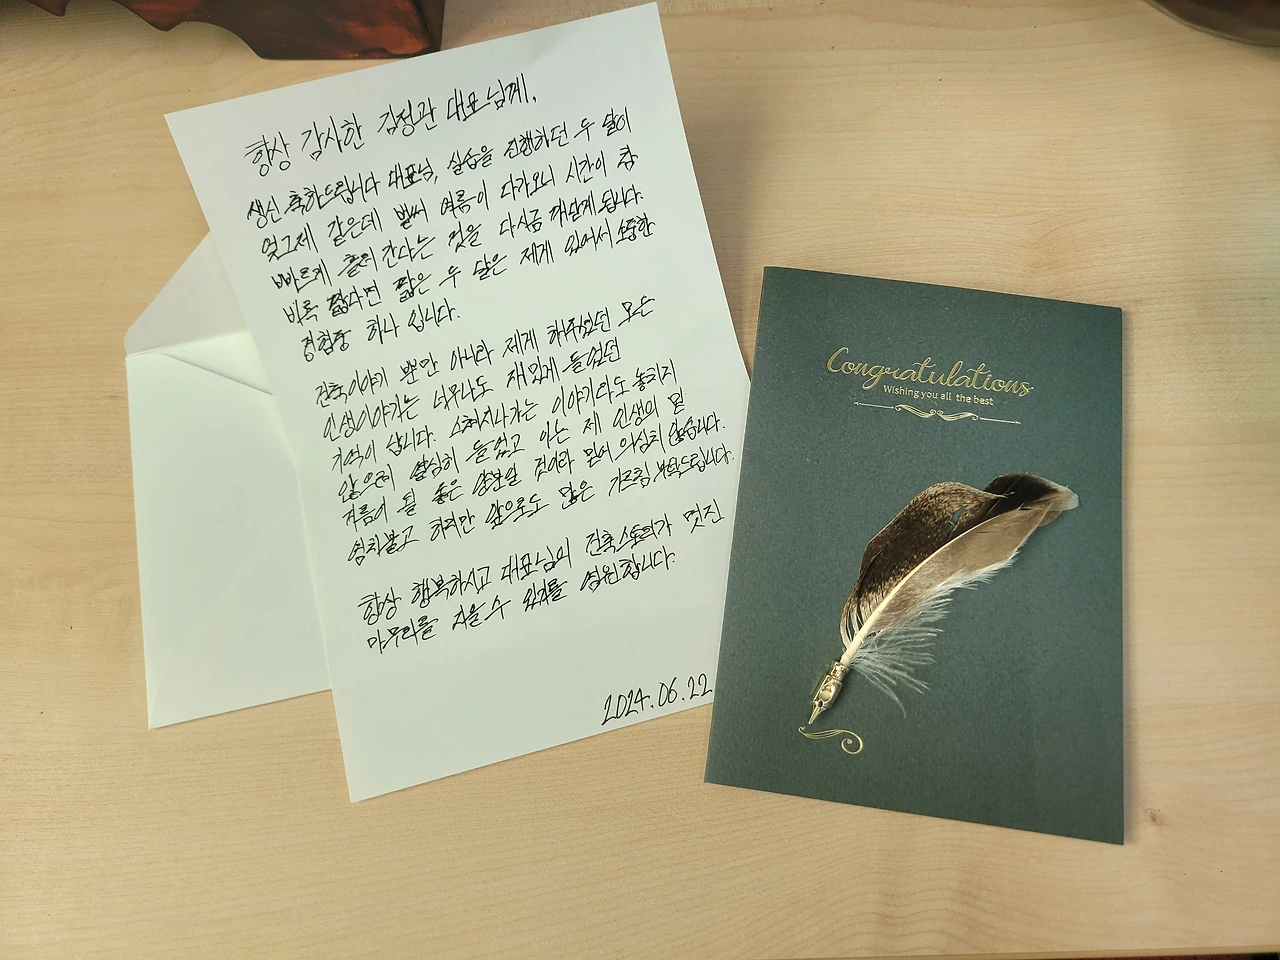 항상 감사한 김정관 대표님께,
생신 축하드립니다 대표님, 실습을 진행하던 두 달이
엊그제 같은데 벌써 여름이 다가오니 시간이 참
빠르게 흘러간다는 것을 다시금 깨닫게 됩니다.
비록 짧다면 짧은 두 달은 제게 있어서 소중한
경험중 하나 입니다.
건축이야기 뿐만 아니라 제게 해주셨던 모든
인생이야기는 너무나도 재밌게 들었던
기억이 납니다. 스쳐지나가는 이야기라도 놓치지
않으려 열심히 들었고 이는 제 인생의 밑
거름이 될 좋은 양분일 것이라 믿어 의심치 않습니다.
염치불고 하지만 앞으로도 많은 가르침 부탁드립니다.
항상 행복하시고 대표님의 건축스토리가 멋진
마무리를 지을 수 있기를 염원합니다.
2024.06.22
Congratulations
Wishing you all the best